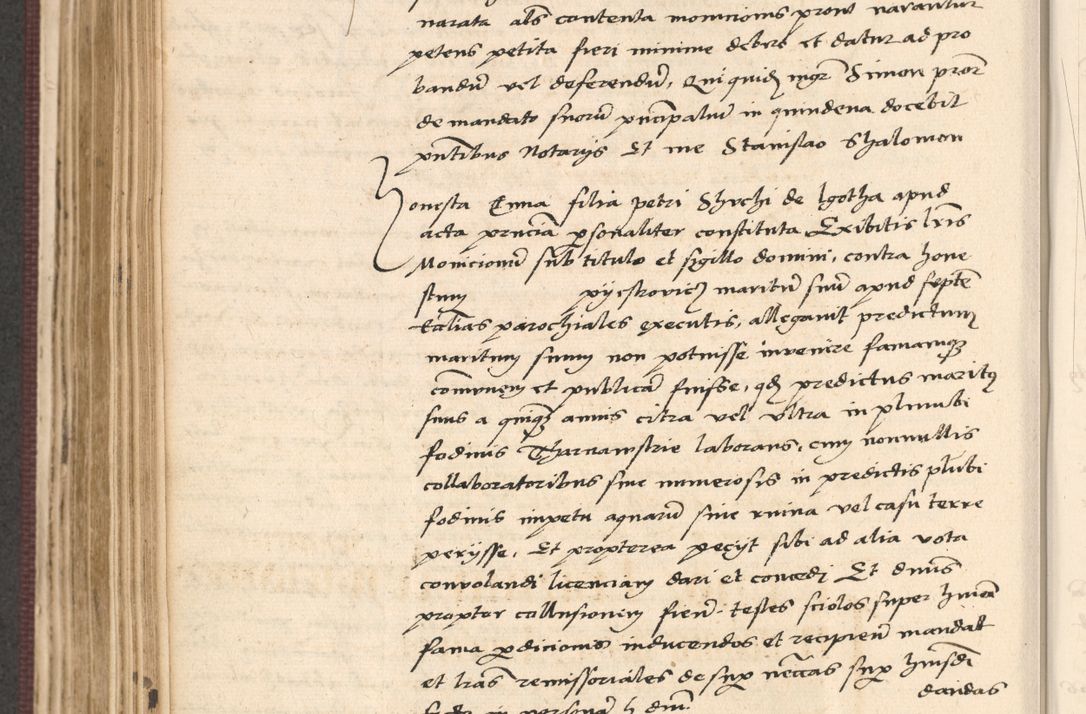 narata als contenta monicionis pront narantur
petens petita fieri minime debere et datur ad pro
bandu vel deferendu, Qui quid mgr Simon pror
de mandato suoru principaliu in quindena docebit
pntibus Notarijs Et me Stanislao Shalomon
Honesta Enna filia petri Shuchi de lgotha apud
acta prnciam psonaliter constituta Exibitis lris
Monicionu sub titulo et sigillo domini, contra hone
stum pyestrovicz maritu suu apud septe
calias parochiales executis, allegavit predictum
maritum suum non potuisse invenire famamq
comunem et publica fuisse, qd predictus maritus
suus a quinq annis citra vel ultra in plumbi
fodinis Tharnawstrie laborans, cum nonnullis
collaboratoribus sive numerosis in predictis plubi
fodinis impetu aquaru sive ruina vel casu terre
perijsse, Et propterea pecijt sibi ad alia vota
convolandi licenciam dari et concedi Et dnus
propter collusionem fien testes sciolos super huica
fama pdicionis inducendos et recipien mandat
et lras remissoriales desup necas sup huisdi
dandas
in personam h dni